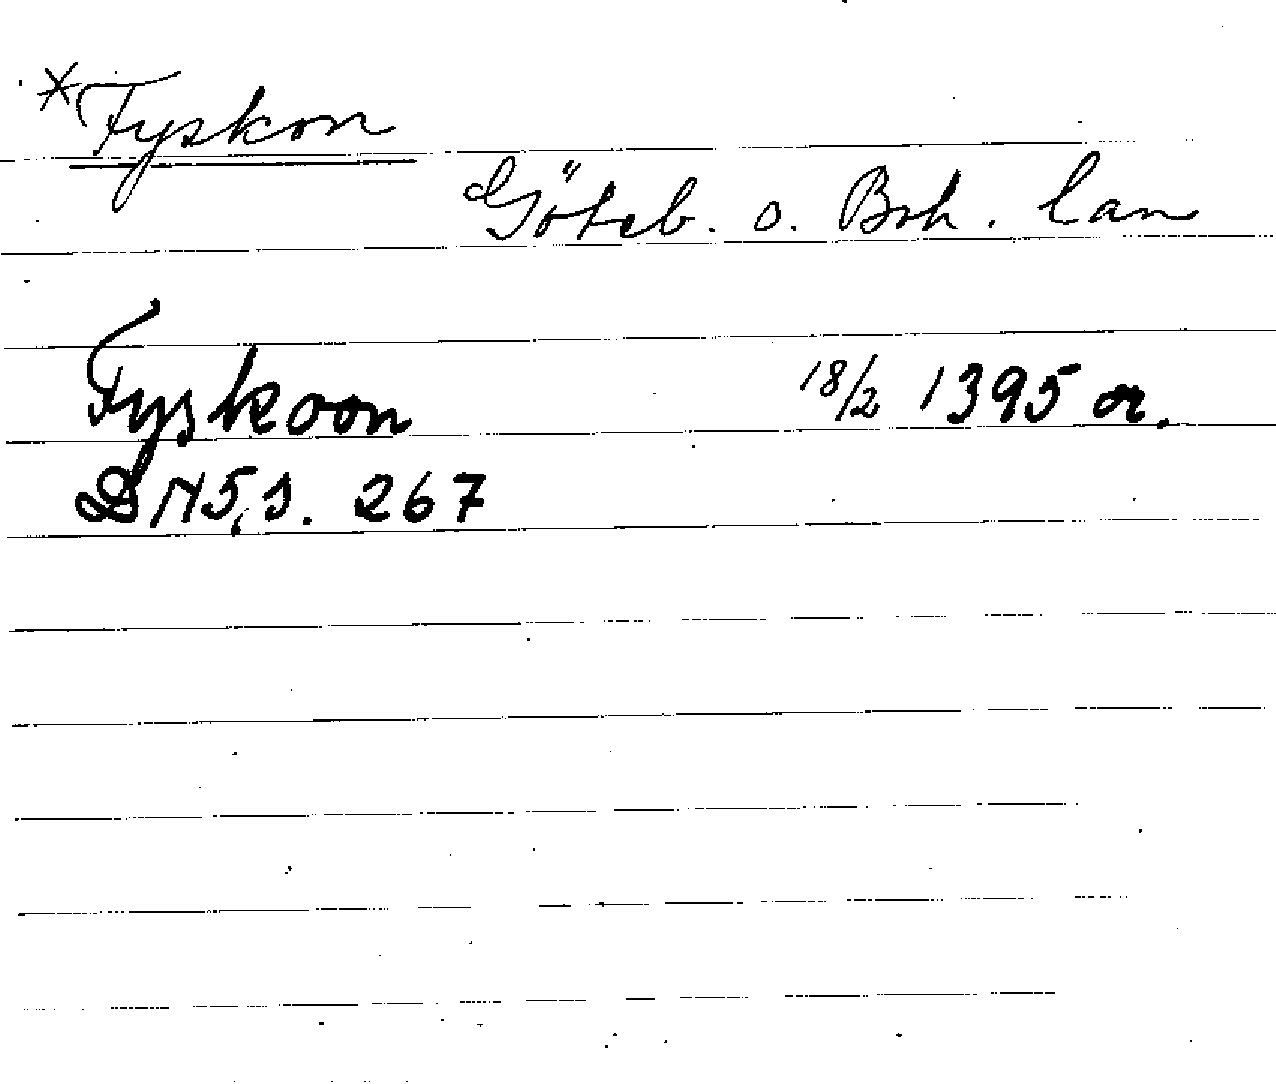 *Fyskon
Göteb. o. Boh. lan
Fyskoon 18/2 1395 or.
DN5,s. 267